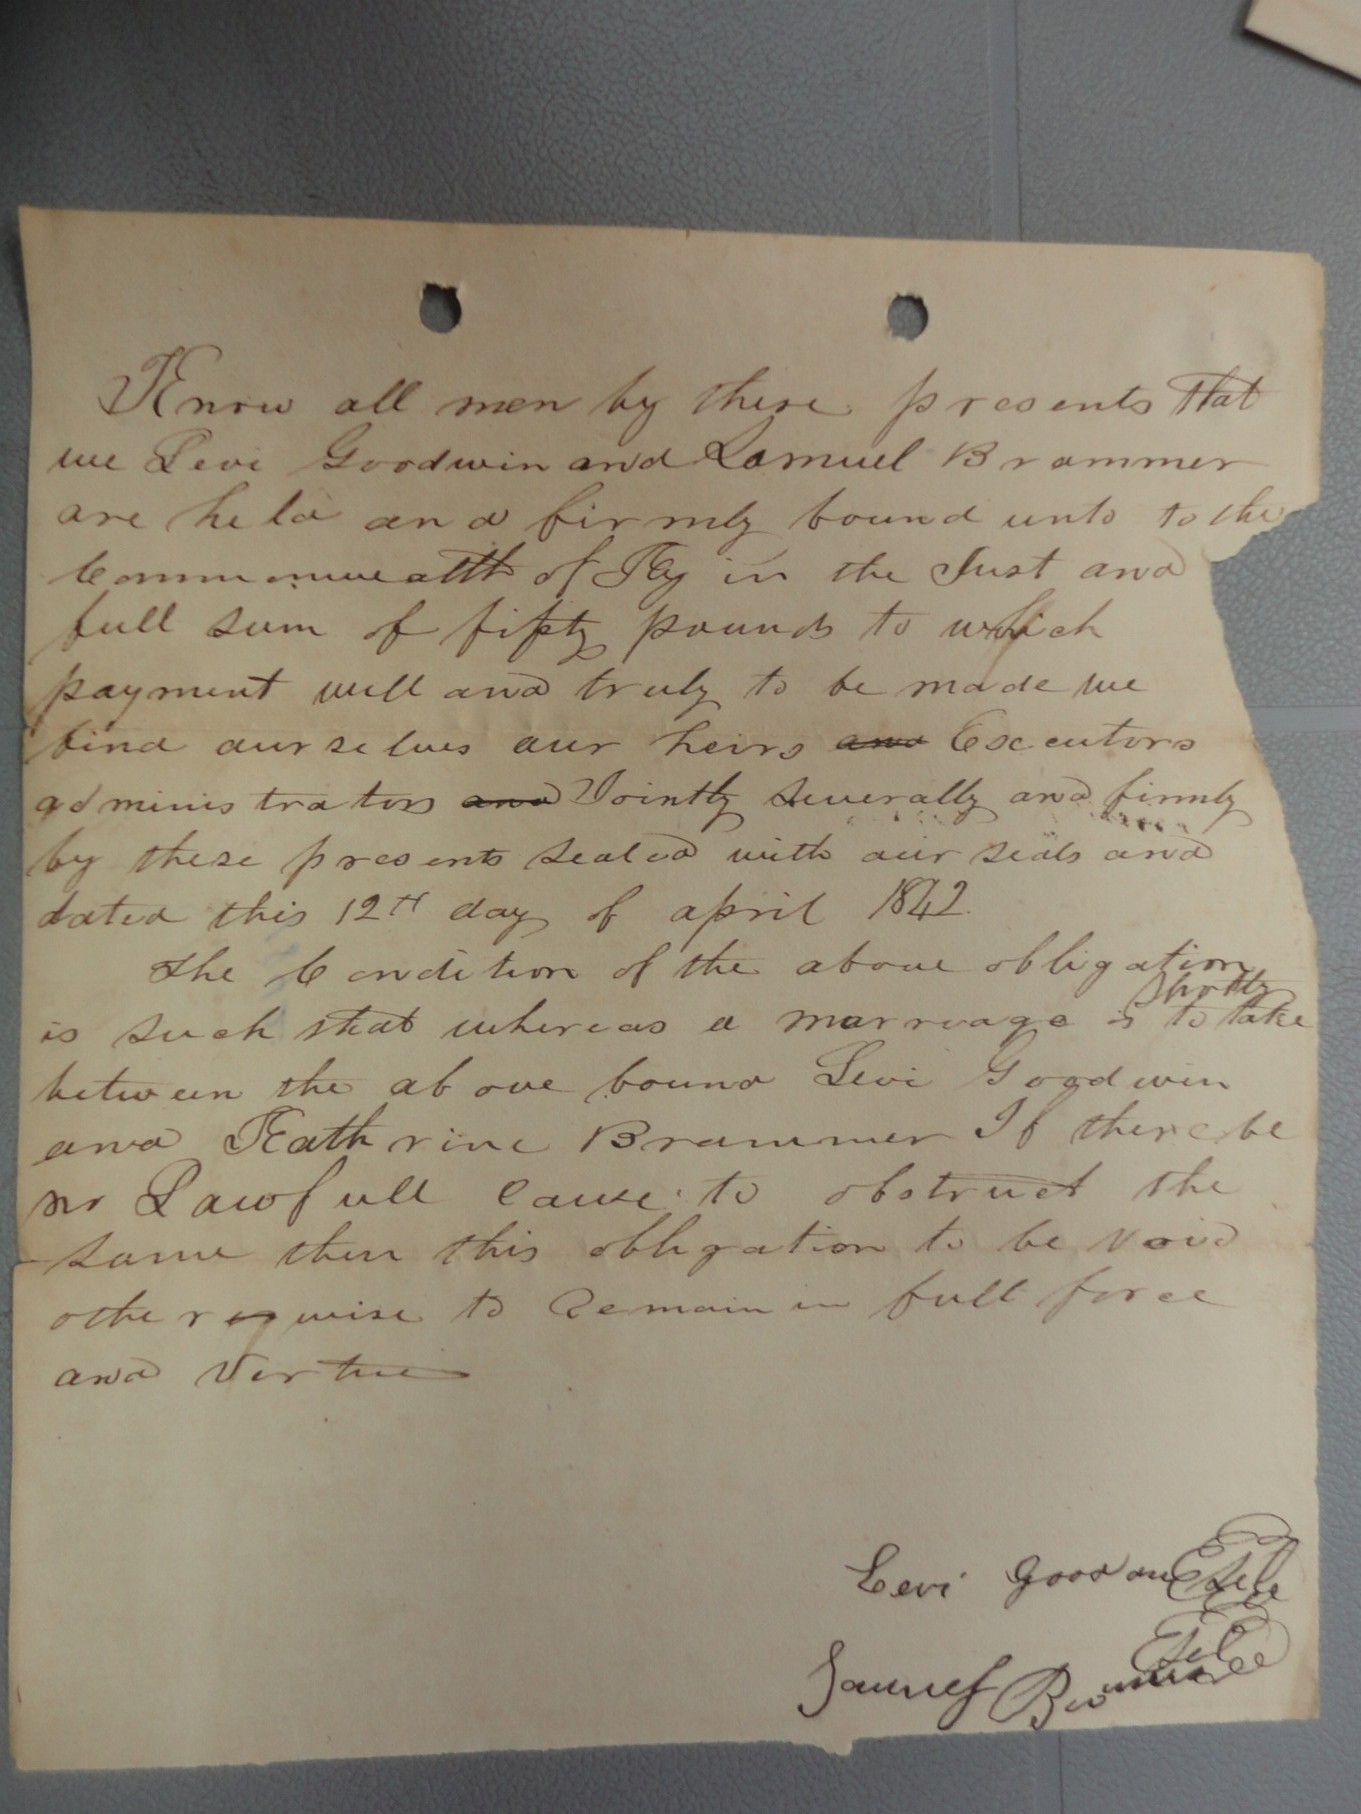 Know all men by these presents That
we Levi Goodwin and Samuel Brammer
are held and firmly bound unto to the
Commonwealth of Ky in the Just and
full sum of fifty pounds to which
payment well and truly to be made we
bind ourselves our heirs and Executors
administrators and Jointly severally and firmly
by these presents sealed with our seals and
dated this 12th day of april 1842
The Condition of the above obligation
shortly
is such that whereas a marriage is to take
between the above bound Levi Goodwin
and Kathrine Brammer If there be
no Lawfull cause to obstruct the
same then this obligation to be void
otherwise to Remain in full force
and Vertue
Levi Goodwin Seal
Seal
Samuel Brammer